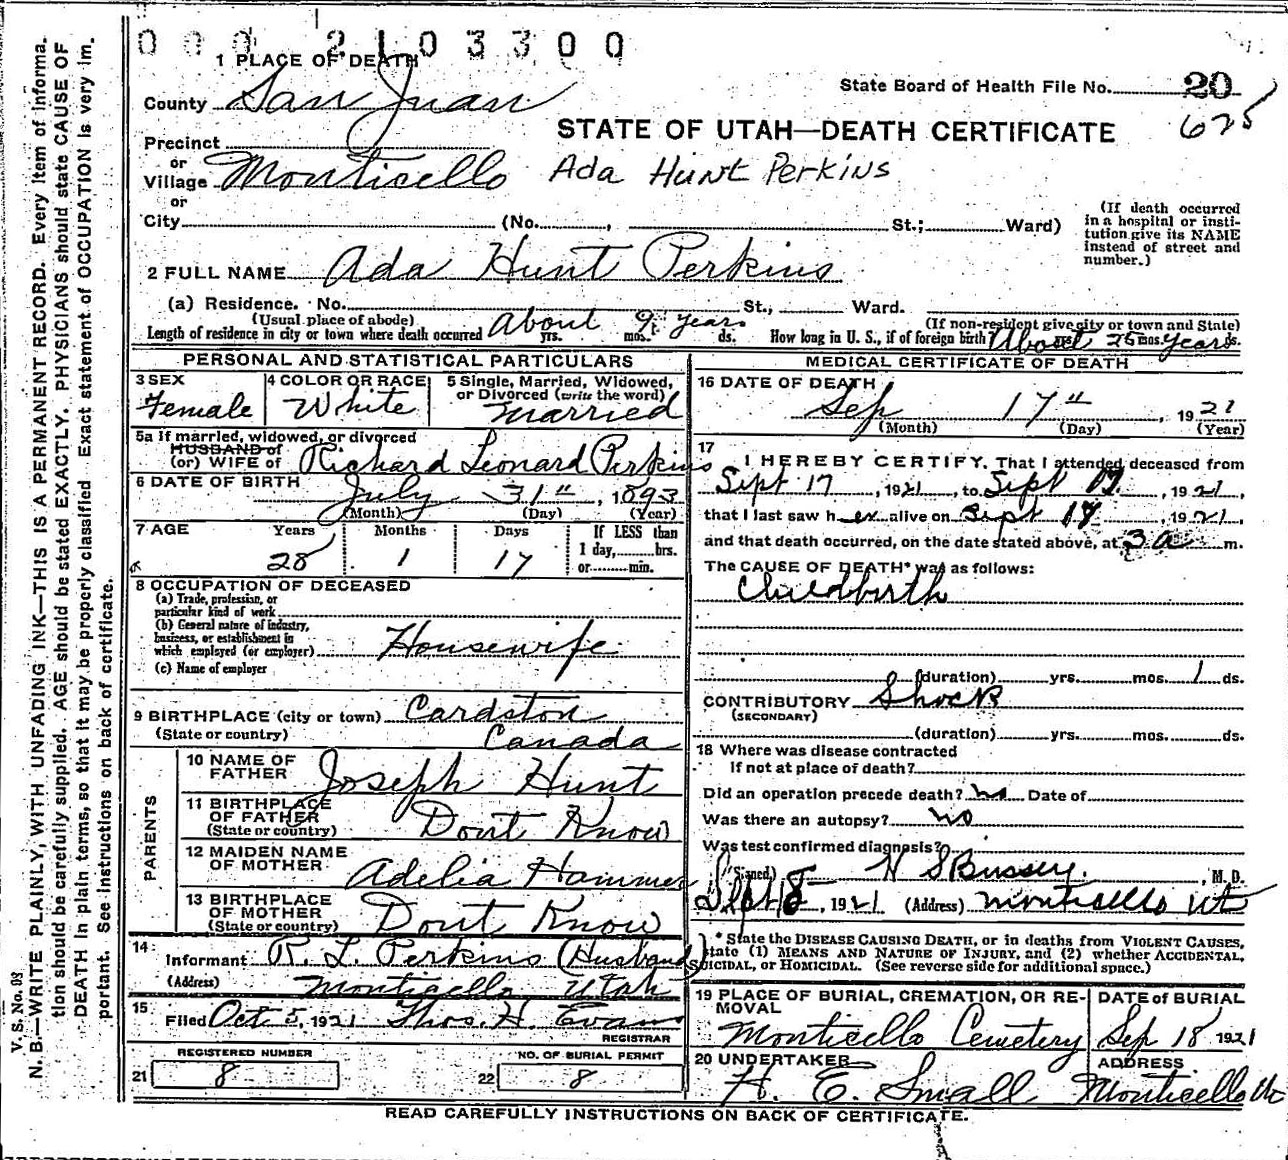 0 0 0 2 1 0 3 3 0 0
1 PLACE OF DEATH
County San Juan
State Board of Health File No. 20
625
STATE OF UTAH—DEATH CERTIFICATE
Precinct
or
Village Monticello
Ada Hunt Perkins
or
City (No. , St.; Ward)
(If death occurred
in a hospital or insti-
tution give its NAME
instead of street and
number.)
2 FULL NAME Ada Hunt Perkins
(a) Residence. No. St., Ward.
(Usual place of abode) (If non-resident give city or town and State)
Length of residence in city or town where death occurred About 9 years yrs. mos. ds. How long in U. S., if of foreign birth? About 25 years mos. ds.
PERSONAL AND STATISTICAL PARTICULARS
3 SEX
Female
4 COLOR OR RACE
White
5 Single, Married, Widowed,
or Divorced (write the word)
Married
5a If married, widowed, or divorced
HUSBAND of
(or) WIFE of Richard Leonard Perkins
6 DATE OF BIRTH
July 31st, 1893
(Month) (Day) (Year)
7 AGE Years Months Days If LESS than
28 1 17 1 day, hrs.
or min.
8 OCCUPATION OF DECEASED
(a) Trade, profession, or
particular kind of work
(b) General nature of industry,
business, or establishment in
which employed (or employer) Housewife
(c) Name of employer
9 BIRTHPLACE (city or town) Cardston
(State or country) Canada
PARENTS
10 NAME OF
FATHER Joseph Hunt
11 BIRTHPLACE
OF FATHER
(State or country) Dont Know
12 MAIDEN NAME
OF MOTHER Adelia Hammer
13 BIRTHPLACE
OF MOTHER
(State or country) Dont Know
14
Informant R. L. Perkins (Husband)
(Address) Monticello Utah
15
Filed Oct 5, 1921 Thos. H. Evans
REGISTRAR
REGISTERED NUMBER
21 8
NO. OF BURIAL PERMIT
22 8
MEDICAL CERTIFICATE OF DEATH
16 DATE OF DEATH
Sep 17th, 1921
(Month) (Day) (Year)
17
I HEREBY CERTIFY, That I attended deceased from
Sept 17, 1921, to Sept 17, 1921,
that I last saw her alive on Sept 17, 1921,
and that death occurred, on the date stated above, at 3 a m.
The CAUSE OF DEATH* was as follows:
Childbirth
(duration) yrs. mos. 1 ds.
CONTRIBUTORY Shock
(SECONDARY)
(duration) yrs. mos. ds.
18 Where was disease contracted
If not at place of death?
Did an operation precede death? no Date of
Was there an autopsy? no
Was test confirmed diagnosis?
(Signed) H S Bussey, M. D.
Sept 18, 1921 (Address) Monticello Ut
* State the DISEASE CAUSING DEATH, or in deaths from VIOLENT CAUSES,
state (1) MEANS AND NATURE OF INJURY, and (2) whether ACCIDENTAL,
SUICIDAL, or HOMICIDAL. (See reverse side for additional space.)
19 PLACE OF BURIAL, CREMATION, OR RE-
MOVAL
Monticello Cemetery
DATE of BURIAL
Sep 18 1921
20 UNDERTAKER
H. E. Small
ADDRESS
Monticello Ut
READ CAREFULLY INSTRUCTIONS ON BACK OF CERTIFICATE.
V. S. No. 98
N. B.—WRITE PLAINLY, WITH UNFADING INK—THIS IS A PERMANENT RECORD. Every item of informa-
tion should be carefully supplied. AGE should be stated EXACTLY. PHYSICIANS should state CAUSE OF
DEATH in plain terms, so that it may be properly classified. Exact statement of OCCUPATION is very im-
portant. See instructions on back of certificate.